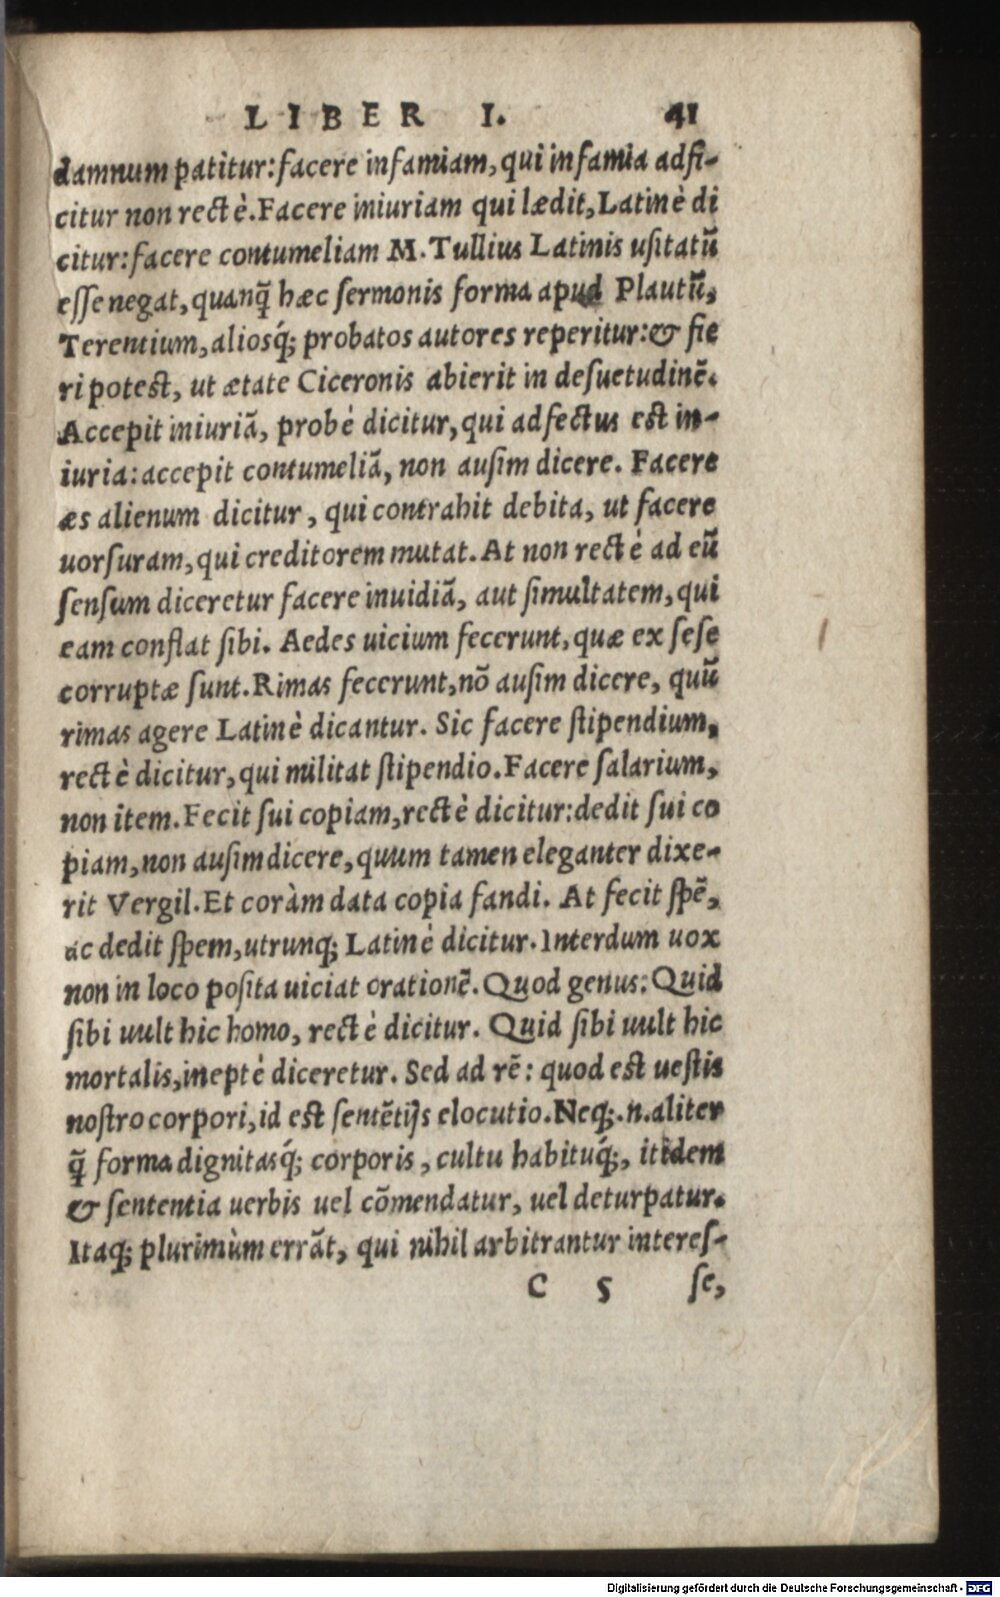 LIBER I. 41
damnum patitur: facere infamiam, qui infamia adfi-
citur non rectè. Facere iniuriam qui lædit, Latinè di
citur: facere contumeliam M. Tullius Latinis usitatũ
esse negat, quanq̃ hæc sermonis forma apud Plautũ,
Terentium, aliosq́; probatos autores reperitur: & fie
ri potest, ut ætate Ciceronis abierit in desuetudinẽ.
Accepit iniuriã, probè dicitur, qui adfectus est in-
iuria: accepit contumeliã, non ausim dicere. Facere
æs alienum dicitur, qui contrahit debita, ut facere
uorsuram, qui creditorem mutat. At non rectè ad eũ
sensum diceretur facere inuidiã, aut simultatem, qui
eam conflat sibi. Aedes uicium fecerunt, quæ ex sese
corruptæ sunt. Rimas fecerunt, nõ ausim dicere, quũ
rimas agere Latinè dicantur. Sic facere stipendium,
rectè dicitur, qui militat stipendio. Facere salarium,
non item. Fecit sui copiam, rectè dicitur: dedit sui co
piam, non ausim dicere, quum tamen eleganter dixe-
rit Vergil. Et coràm data copia fandi. At fecit spẽ,
ac dedit spem, utrunq; Latinè dicitur. Interdum uox
non in loco posita uiciat orationẽ. Quod genus: Quid
sibi uult hic homo, rectè dicitur. Quid sibi uult hic
mortalis, ineptè diceretur. Sed ad rẽ: quod est uestis
nostro corpori, id est sentẽtijs elocutio. Neq;. n. aliter
q̃ forma dignitasq́; corporis, cultu habituq́;, itidem
& sententia uerbis uel cõmendatur, uel deturpatur.
Itaq; plurimùm errãt, qui nihil arbitrantur interes-
C 5 se,
Digitalisierung gefördert durch die Deutsche Forschungsgemeinschaft - DFG